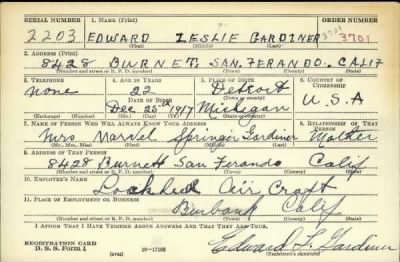 SERIAL NUMBER 1. NAME (Print) ORDER NUMBER
2203 EDWARD LESLIE GARDINER 3701 3701
(First) (Middle) (Last)
2. ADDRESS (Print)
8428 BURNET. SAN. FERANDO. CALIF
(Number and street or R. F. D. number) (Town) (County) (State)
3. TELEPHONE 4. AGE IN YEARS 5. PLACE OF BIRTH 6. COUNTRY OF CITIZENSHIP
none 22 Detroit
DATE OF BIRTH (Town or county)
Dec 25th 1917 Michigan U.S.A
(Exchange) (Number) (Mo.) (Day) (Yr.) (State or country)
7. NAME OF PERSON WHO WILL ALWAYS KNOW YOUR ADDRESS 8. RELATIONSHIP OF THAT PERSON
Mrs Marvel Springer Gardiner Mother
(Mr., Mrs., Miss) (First) (Middle) (Last)
9. ADDRESS OF THAT PERSON
8428 Burnett San Ferando Calif
(Number and street or R. F. D. number) (Town) (County) (State)
10. EMPLOYER'S NAME
Lockheed Air Craft
11. PLACE OF EMPLOYMENT OR BUSINESS
Burbank Calif
(Number and street or R. F. D. number) (Town) (County) (State)
I AFFIRM THAT I HAVE VERIFIED ABOVE ANSWERS AND THAT THEY ARE TRUE.
REGISTRATION CARD
D. S. S. Form 1 (over) 16-17105 Edward L. Gardiner
(Registrant's signature)